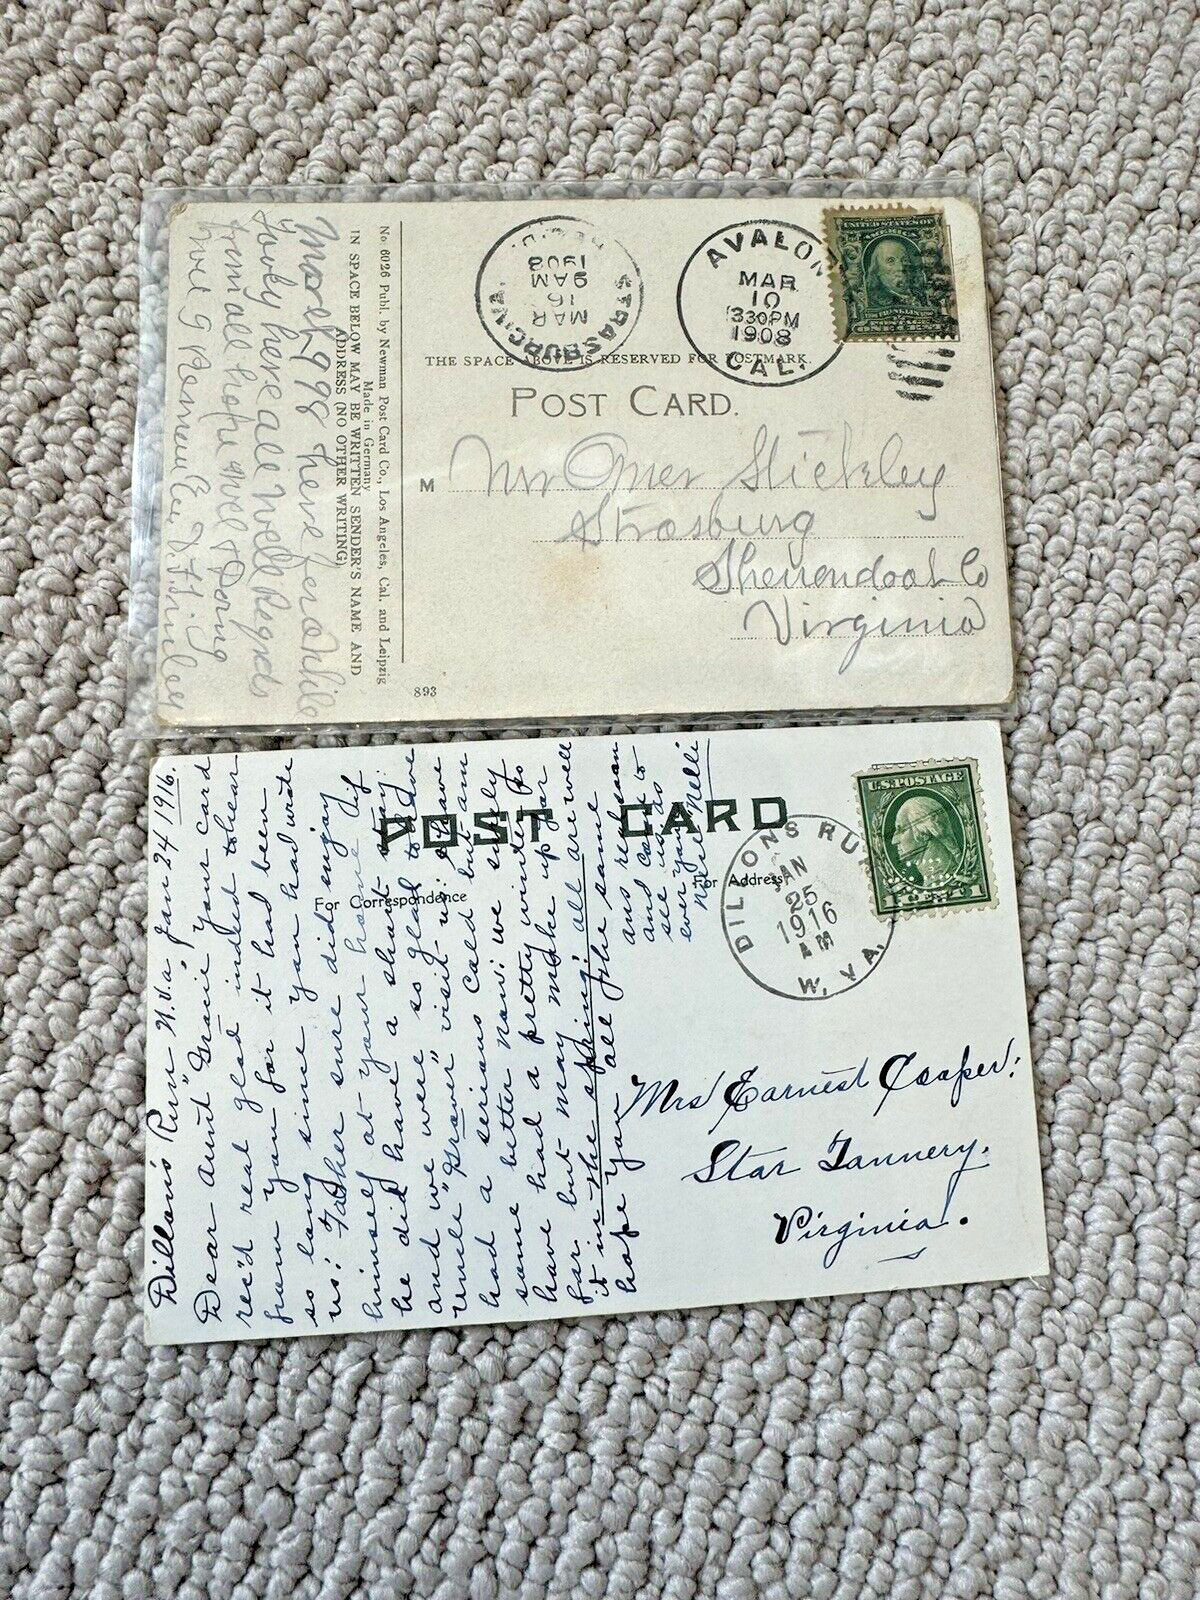 UNITED STATES OF
AMERICA
AVALON
MAR
10
330PM
1908
CAL.
STRASBURG, VA.
MAR
16
9AM
1908
REC'D.
THE SPACE ABOVE IS RESERVED FOR POSTMARK.
POST CARD.
M Mr Omer Stickley
Strasburg
Shenondoah Co
Virginia
No. 6026 Publ. by Newman Post Card Co., Los Angeles, Cal. and Leipzig
Made in Germany
IN SPACE BELOW MAY BE WRITTEN SENDER'S NAME AND
ADDRESS (NO OTHER WRITING)
893
March 9 08 here for a while
here all Well Regards
from all hope Well &
POST CARD
For Correspondence
For Address
U.S. POSTAGE
1
DILLONS RUN
JAN
25
1916
AM
W. VA.
Mrs Earnest Cooper:
Star Tannery.
Virginia.
Dillon's Run W.Va Jan 24 1916.
Dear Aunt "Gracie" your card
rec'd real glad indeed to hear
from you for it had been
so long since you had wrote
us: Father sure did enjoy
himself at your home if
he did have a short stay:
and we were so glad to have
Uncle "Grover" visit us: I have
had a serious Cold but am
some better now: we surely
have had a pretty winter so
far but may make up for
it in the spring: all are well
hope you all the same
ans real soon
and come to
see us as
ever your
Neice Nelli